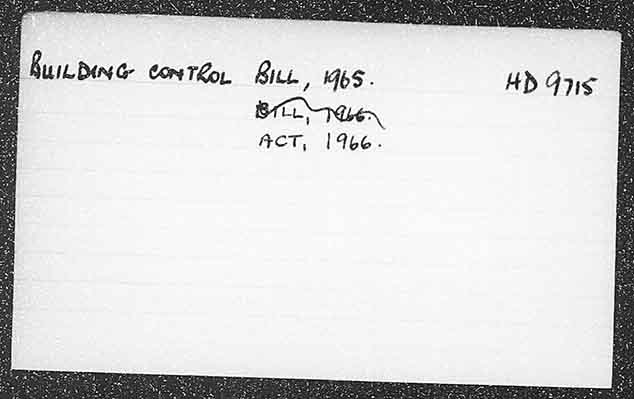 BUILDING CONTROL BILL, 1965. HD 9715
BILL, 1966.
ACT, 1966.